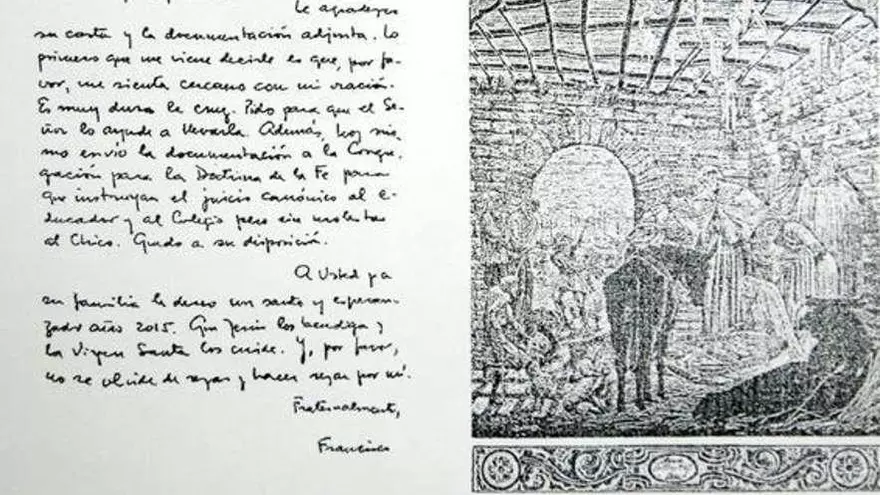 Le agradezco
su carta y la documentación adjunta. Lo
primero que me viene decirle es que, por fa-
vor, me sienta cercano con mi oración.
Es muy dura la cruz. Pido para que el Se-
ñor lo ayude a llevarla. Además, hoy mis-
mo envío la documentación a la Congre-
gación para la Doctrina de la Fe para
que instruyan el juicio canónico al e-
ducador y al Colegio pero sin molestar
al Chico. Quedo a su disposición.
A Usted y a
su familia le deseo un santo y esperan-
zado año 2015. Que Jesús los bendiga y
la Virgen Santa los cuide. Y, por favor,
no se olvide de rezar y hacer rezar por mí.
Fraternalmente,
Francisco